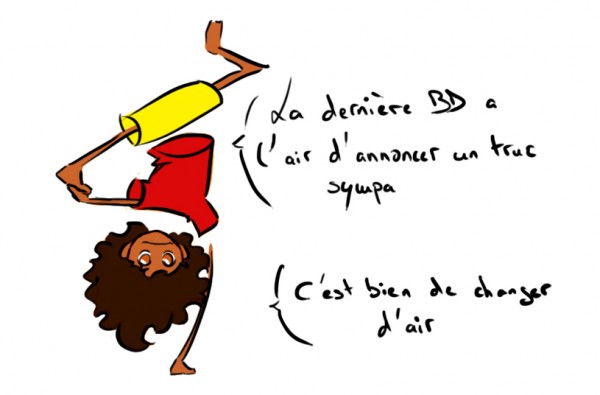 La dernière BD a
l'air d'annoncer un truc
sympa
C'est bien de changer
d'air